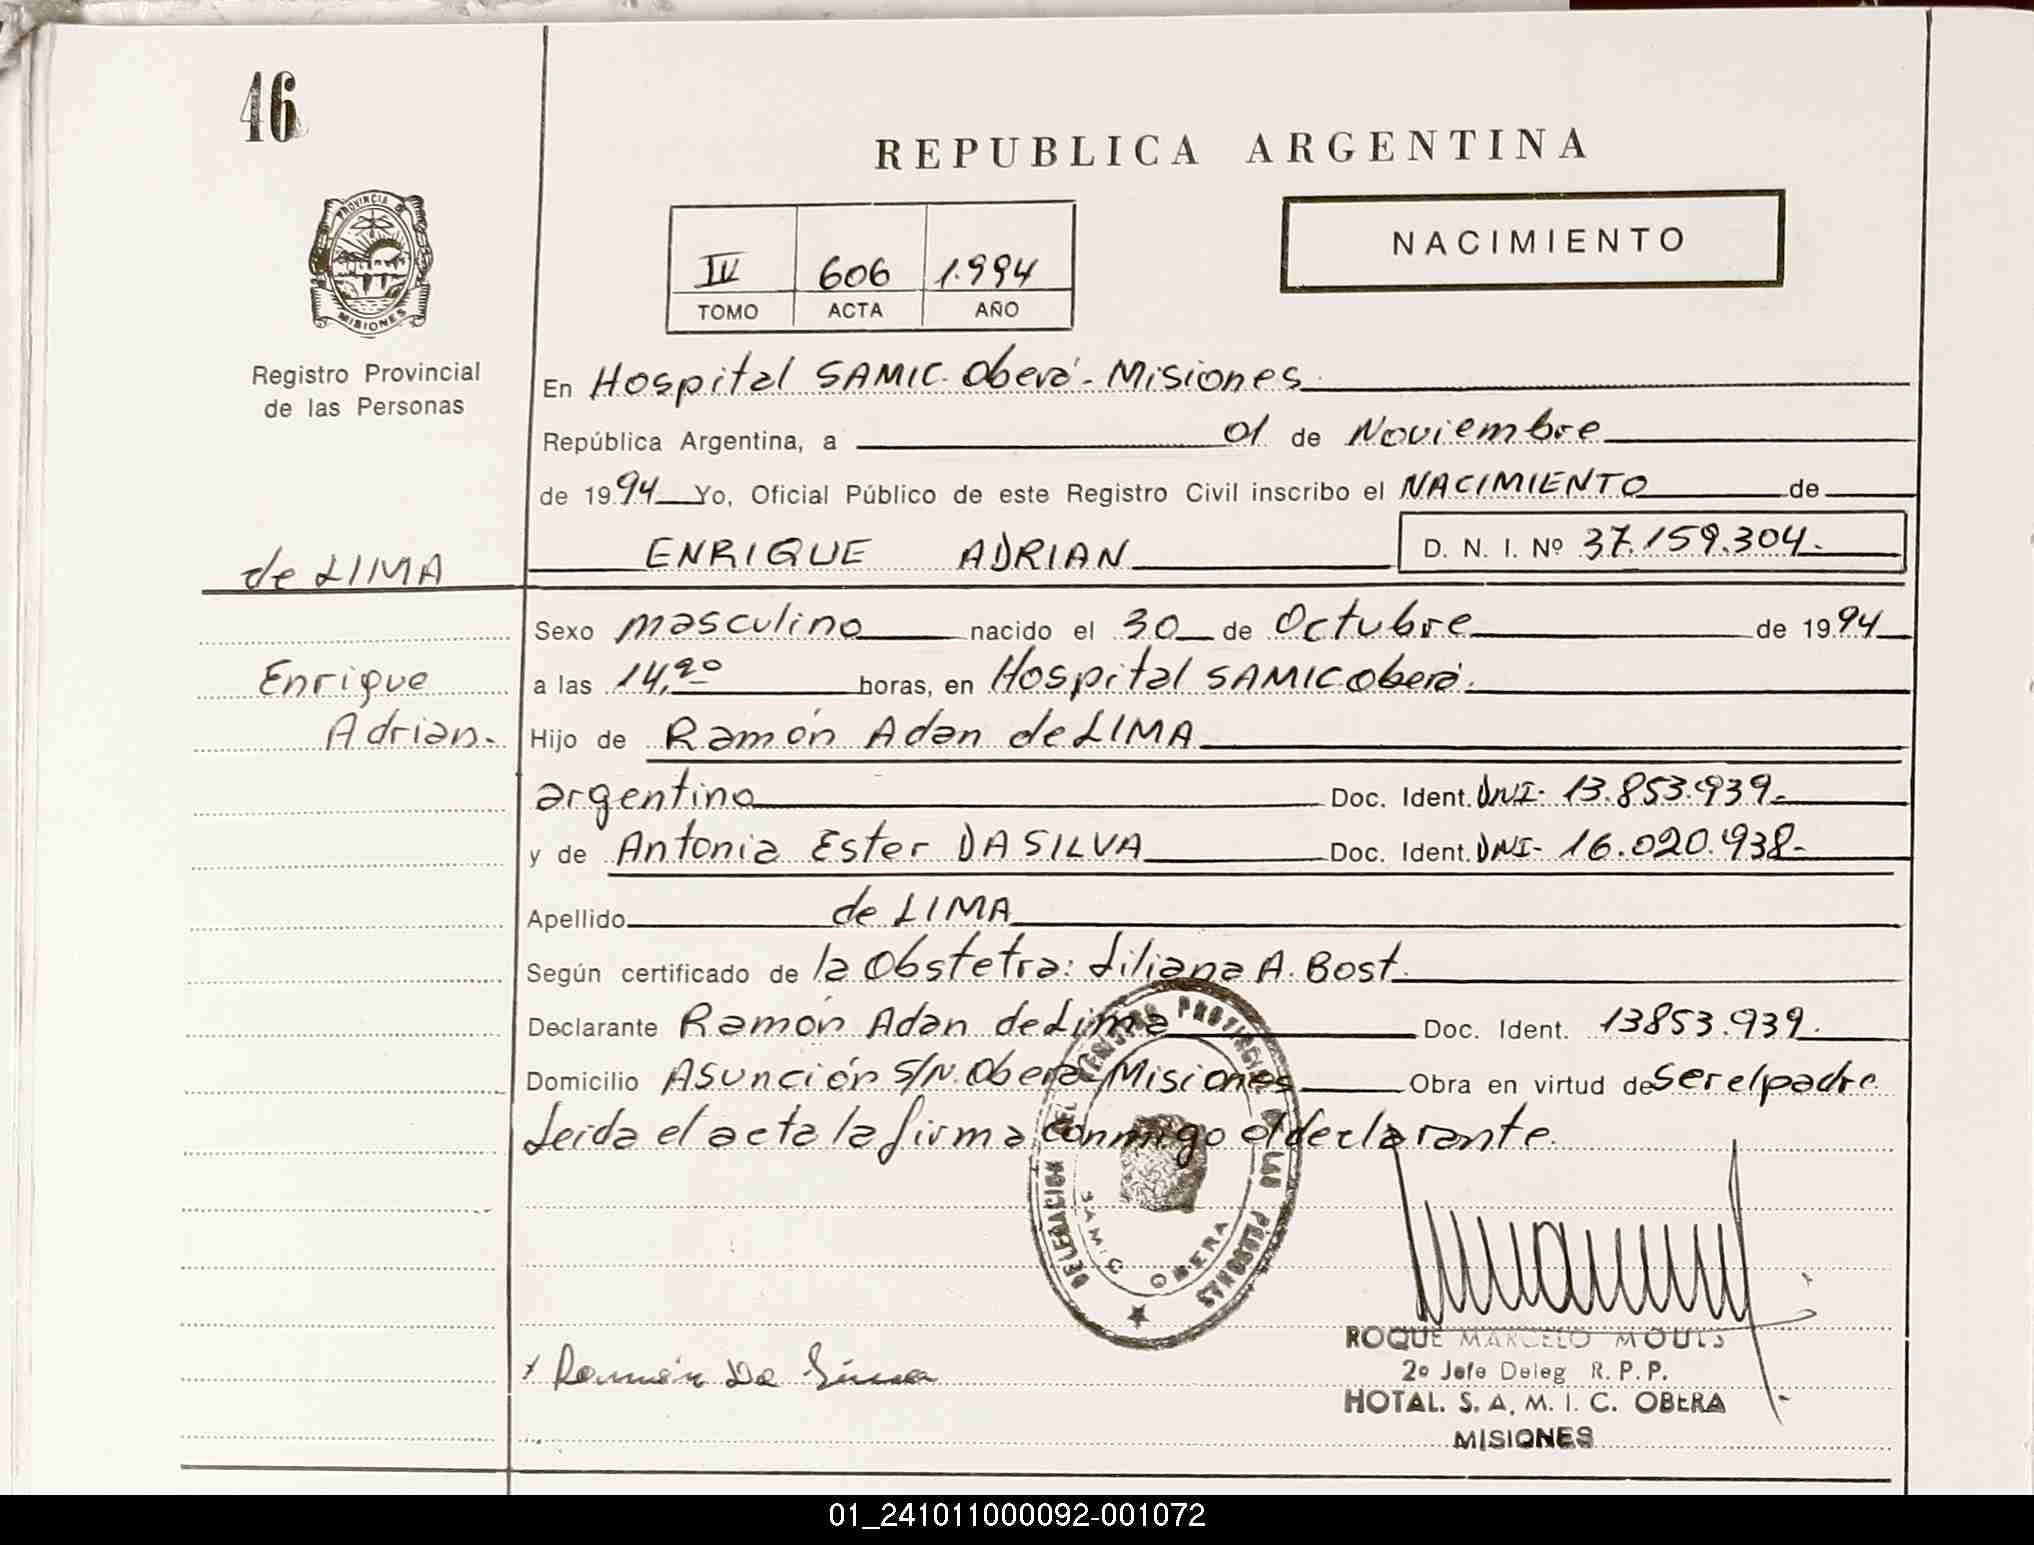 46
REPUBLICA ARGENTINA
PROVINCIA D
MISIONES
NACIMIENTO
IV 606 1.994
TOMO ACTA AÑO
Registro Provincial
de las Personas
En Hospital SAMIC. Oberá - Misiones
República Argentina, a 01 de Noviembre
de 1994 Yo, Oficial Público de este Registro Civil inscribo el NACIMIENTO de
de LIMA ENRIQUE ADRIAN D. N. I. Nº 37.159.304.-
Sexo masculino nacido el 30 de Octubre de 1994
Enrique a las 14,20 horas, en Hospital SAMIC Oberá.
Adrian.- Hijo de Ramón Adan de LIMA
argentino Doc. Ident. DNI- 13.853.939.-
y de Antonia Ester DA SILVA Doc. Ident. DNI- 16.020.938-
Apellido de LIMA
Según certificado de la Obstetra: Liliana A. Bost.
Declarante Ramón Adan de Lima Doc. Ident. 13853.939.
Domicilio Asunción S/N. Oberá - Misiones Obra en virtud de Ser el padre
Leida el acta la firma conmigo el declarante.
DELEGACION DEL REGISTRO PROVINCIAL DE LAS PERSONAS
SAMIC OBERA
x Ramón De Lima
ROQUE MARCELO
2º Jefe Deleg R. P. P.
HOTAL. S. A. M. I. C. OBERA
MISIONES
01_241011000092-001072